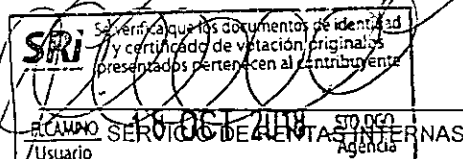 SRi Se verifica que los documentos de identidad
y certificado de votación originales
presentados pertenecen al contribuyente
18 OCT 2018
SERVICIO DE RENTAS INTERNAS
/Usuario Agencia